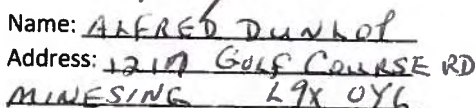 Name: ALFRED DUNLOP
Address: 1217 GOLF COURSE RD
MINESING L9X 0Y6